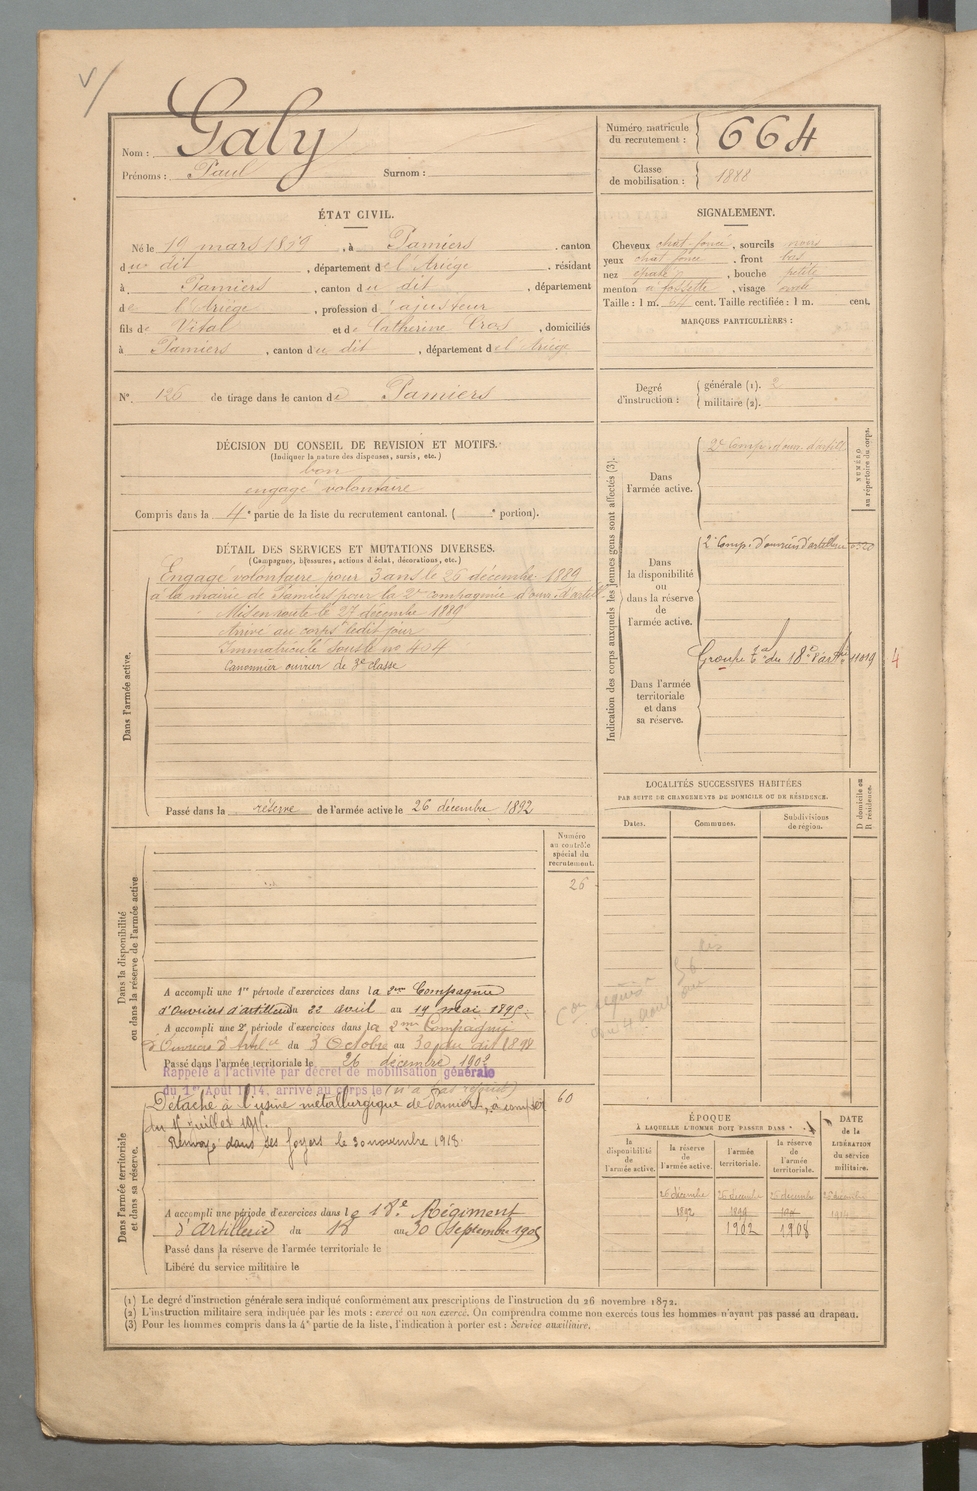 V/
Nom : Galy
Prénoms : Paul Surnom :
Numéro matricule
du recrutement : 664
Classe
de mobilisation : 1888
ÉTAT CIVIL.
Né le 19 mars 1859, à Pamiers, canton
du dit, département de l'Ariège, résidant
à Pamiers, canton du dit, département
de l'Ariège, profession d'ajusteur
fils de Vital et de Catherine Cros, domiciliés
à Pamiers, canton du dit, département de l'Ariège
SIGNALEMENT.
Cheveux chat. foncé, sourcils noirs
yeux chat. foncé, front bas
nez épaté, bouche petite
menton à fossette, visage ovale
Taille : 1 m. 64 cent. Taille rectifiée : 1 m. cent.
MARQUES PARTICULIÈRES :
N° 126 de tirage dans le canton de Pamiers
Degré
d'instruction :
générale (1). 2
militaire (2).
DÉCISION DU CONSEIL DE REVISION ET MOTIFS.
(Indiquer la nature des dispenses, sursis, etc.)
bon
engagé volontaire
Compris dans la 4e partie de la liste du recrutement cantonal. ( e portion).
DÉTAIL DES SERVICES ET MUTATIONS DIVERSES.
(Campagnes, blessures, actions d'éclat, décorations, etc.)
Dans l'armée active.
Engagé volontaire pour 3 ans le 26 décembre 1889
à la mairie de Pamiers pour la 2e compagnie d'ouv. d'artill
Mis en route le 27 décembre 1889
Arrivé au corps ledit jour
Immatriculé sous le no 404
Canonnier ouvrier de 3e classe
Passé dans la réserve de l'armée active le 26 décembre 1892
Indication des corps auxquels les jeunes gens sont affectés (3).
NUMÉRO
au répertoire du corps.
Dans
l'armée active.
2e Comp. d'ouv. d'artill
Dans
la disponibilité
ou
dans la réserve
de
l'armée active.
2e Comp. d'ouvriers d'artillerie
Dans l'armée
territoriale
et dans
sa réserve.
Groupe tal du 18e d'artie 11019 4
LOCALITÉS SUCCESSIVES HABITÉES
PAR SUITE DE CHANGEMENTS DE DOMICILE OU DE RÉSIDENCE.
D domicile ou
R résidence.
Dates. Communes. Subdivisions
de région.
Dans la disponibilité
ou dans la réserve de l'armée active
Numéro
au contrôle
spécial du
recrutement.
26
A accompli une 1re période d'exercices dans la 2me Compagnie
d'Ouvriers d'artillerie du 22 avril au 19 mai 1895.
A accompli une 2e période d'exercices dans la 2me Compagnie
d'Ouvriers d'Artie du 3 Octobre au 30 du dit 1898
Passé dans l'armée territoriale le 26 décembre 1902
Rappelé à l'activité par décret de mobilisation générale
du 1er Août 1914, arrivé au corps le (n'a pas rejoint)
Dans l'armée territoriale
et dans sa réserve.
Détaché à l'usine métallurgique de Pamiers, à compter 60
du 1er juillet 1915.
Renvoyé dans ses foyers le 30 novembre 1918
A accompli une période d'exercices dans le 18e Régiment
d'Artillerie du 18 au 30 Septembre 1905
Passé dans la réserve de l'armée territoriale le
Libéré du service militaire le
ÉPOQUE
À LAQUELLE L'HOMME DOIT PASSER DANS
DATE
de la
LIBÉRATION
du service
militaire.
la
disponibilité
de
l'armée active.
la réserve
de
l'armée active.
l'armée
territoriale.
la réserve
de
l'armée
territoriale.
26 décembre 26 décembre 26 décembre 26 décembre
1892 1899 1914
1902 1908
(1) Le degré d'instruction générale sera indiqué conformément aux prescriptions de l'instruction du 26 novembre 1872.
(2) L'instruction militaire sera indiquée par les mots : exercé ou non exercé. On comprendra comme non exercés tous les hommes n'ayant pas passé au drapeau.
(3) Pour les hommes compris dans la 4e partie de la liste, l'indication à porter est : Service auxiliaire.